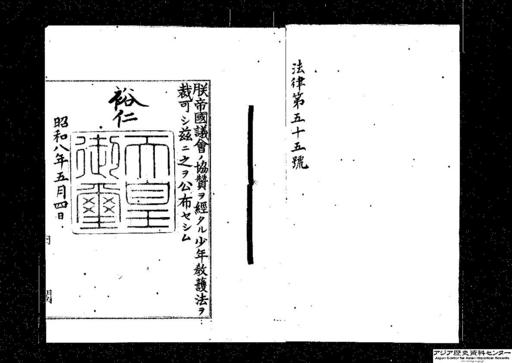 法律第五十五號
朕帝國議會ノ協贊ヲ經タル少年敎護法ヲ
裁可シ茲ニ之ヲ公布セシム
裕仁
天皇
御璽
昭和八年五月四日
アジア歴史資料センター
Japan Center for Asian Historical Records